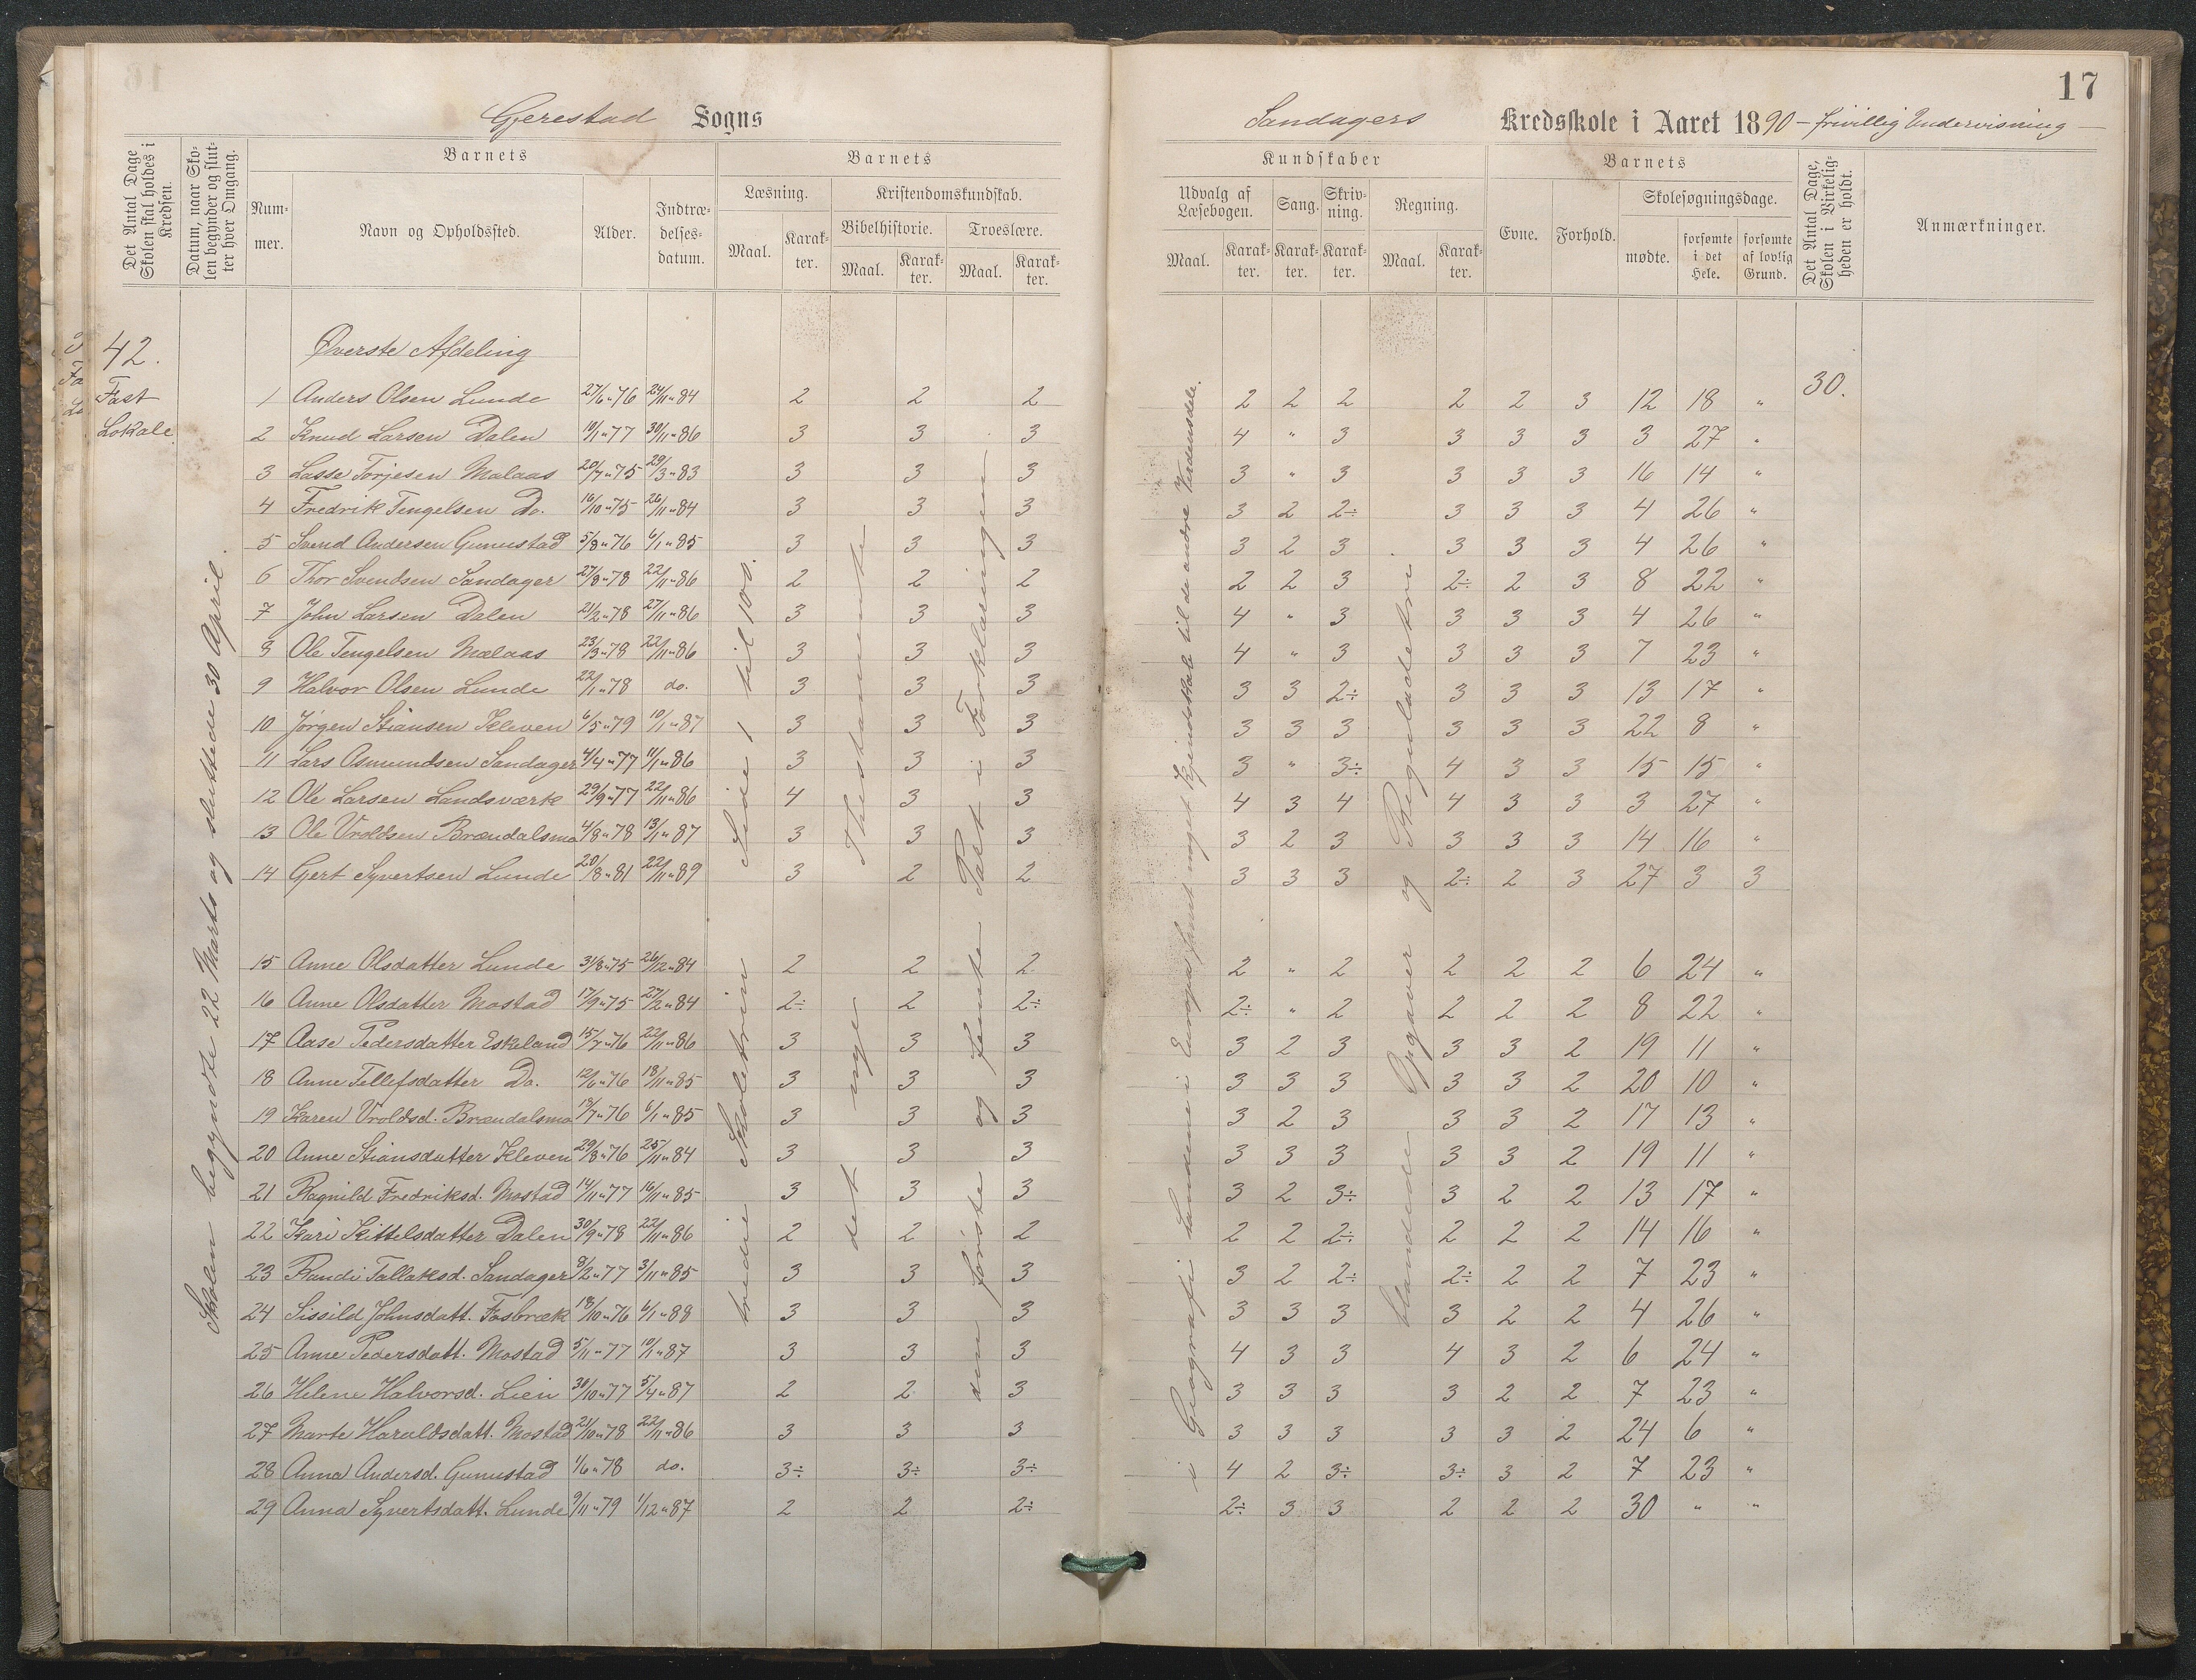 17
Gjerestad Sogns Sandagers Kredsskole i Aaret 1890 – frivillig Undervisning –
Det Antal Dage Skolen skal holdes i Kredsen.
Datum, naar Skolen begynder og slutter hver Omgang.
Barnets
Nummer.
Navn og Opholdssted.
Alder.
Indtrædelsesdatum.
Barnets
Læsning.
Maal.
Karakter.
Kristendomskundskab.
Bibelhistorie.
Maal.
Karakter.
Troeslære.
Maal.
Karakter.
Kundskaber
Udvalg af Læsebogen.
Maal.
Karakter.
Sang.
Karakter.
Skrivning.
Karakter.
Regning.
Maal.
Karakter.
Barnets
Evne.
Forhold.
Skolesøgningsdage.
mødte.
forsømte i det Hele.
forsømte af lovlig Grund.
Det Antal Dage, Skolen i Virkeligheden er holdt.
Anmærkninger.
42.
Fast
Lokale.
Skolen begyndte 22 Marts og sluttede 30 April.
Øverste Afdeling
30.
1 Anders Olsen Lunde 27/6 " 76 24/11 " 84 2 2 2 2 2 2 2 2 3 12 18 "
2 Knud Larsen Dalen 10/1 " 77 30/11 " 86 3 3 3 4 " 3 3 3 3 3 27 "
3 Lasse Torjesen Malaas 20/7 " 75 29/3 " 83 3 3 3 3 " 3 3 3 3 16 14 "
4 Fredrik Tengelsen Do. 16/10 " 75 26/11 " 84 3 3 3 3 2 2÷ 3 3 3 4 26 "
5 Svend Andersen Gunustad 5/8 " 76 6/1 " 85 3 3 3 3 2 3 3 3 3 4 26 "
6 Thor Svendsen Sandager 27/8 " 78 22/11 " 86 2 2 2 2 2 3 2÷ 2 3 8 22 "
7 John Larsen Dalen 21/2 " 78 27/11 " 86 3 3 3 4 " 3 3 3 3 4 26 "
8 Ole Tengelsen Malaas 23/3 " 78 22/11 " 86 3 3 3 4 " 3 3 3 3 7 23 "
9 Halvor Olsen Lunde 22/1 " 78 do. 3 3 3 3 3 2÷ 3 3 3 13 17 "
10 Jørgen Stiansen Kleven 6/5 " 79 10/1 " 87 3 3 3 3 3 3 3 3 3 22 8 "
11 Lars Osmundsen Sandager 4/4 " 77 11/1 " 86 3 3 3 3 " 3÷ 4 3 3 15 15 "
12 Ole Larsen Landsværk 29/9 " 77 22/11 " 86 4 3 3 4 3 4 4 3 3 3 27 "
13 Ole Vroldsen Brændalsmo 4/8 " 78 13/1 " 87 3 3 3 3 2 3 3 3 3 14 16 "
14 Gert Syvertsen Lunde 20/8 " 81 22/11 " 89 3 2 2 3 3 3 2÷ 2 3 27 3 3
15 Anne Olsdatter Lunde 31/8 " 75 26/12 " 84 2 2 2 2 " 2 2 2 2 6 24 "
16 Anne Olsdatter Mostad 17/9 " 75 27/2 " 84 2÷ 2 2÷ 2÷ " 2 2 2 2 8 22 "
17 Aase Pedersdatter Eskeland 15/7 " 76 22/11 " 86 3 3 3 3 2 3 3 3 2 19 11 "
18 Anne Tellefsdatter Do. 12/6 " 76 18/11 " 85 3 3 3 3 3 3 3 3 2 20 10 "
19 Karen Vroldsd. Brændalsmo 19/7 " 76 6/1 " 85 3 3 3 3 2 3 3 3 2 17 13 "
20 Anne Stiansdatter Kleven 29/8 " 76 25/11 " 84 3 3 3 3 3 3 3 3 2 19 11 "
21 Ragnild Fredriksd. Mostad 14/11 " 77 16/11 " 85 3 3 3 3 2 3÷ 3 2 2 13 17 "
22 Kari Kittelsdatter Dalen 30/9 " 78 22/11 " 86 2 2 2 2 2 2÷ 2 2 2 14 16 "
23 Randi Tallaksd. Sandager 8/2 " 77 3/11 " 85 3 3 3 3 2 2÷ 2÷ 2 2 7 23 "
24 Sissild Johnsdatt. Fosbræk 18/10 " 76 6/1 " 88 3 3 3 3 3 3 3 2 2 4 26 "
25 Anne Pedersdatt. Mostad 5/11 " 77 10/1 " 87 3 3 3 4 3 3 4 3 2 6 24 "
26 Helene Halvorsd. Lien 30/10 " 77 5/4 " 87 2 2 3 3 3 3 3 2 2 7 23 "
27 Marte Haraldsdatt. Mostad 21/10 " 78 22/11 " 86 3 3 3 3 3 3 3 3 2 24 6 "
28 Anna Andersd. Gunustad 1/6 " 78 do. 3÷ 3÷ 3÷ 4 2 3÷ 3÷ 3 2 7 23 "
29 Anna Syvertsdatt. Lunde 9/11 " 79 1/12 " 87 2 2 2÷ 2÷ 3 3 2 2 2 30 " "
tredie Skoletrin Side 1 til 100.
det nye Thestamente
den første og femte Part i Forklaringen
i Geografi Landene i Europa samt noget Kjendskab til de andre Verdensdele.
blandede Opgaver og Reguladetri